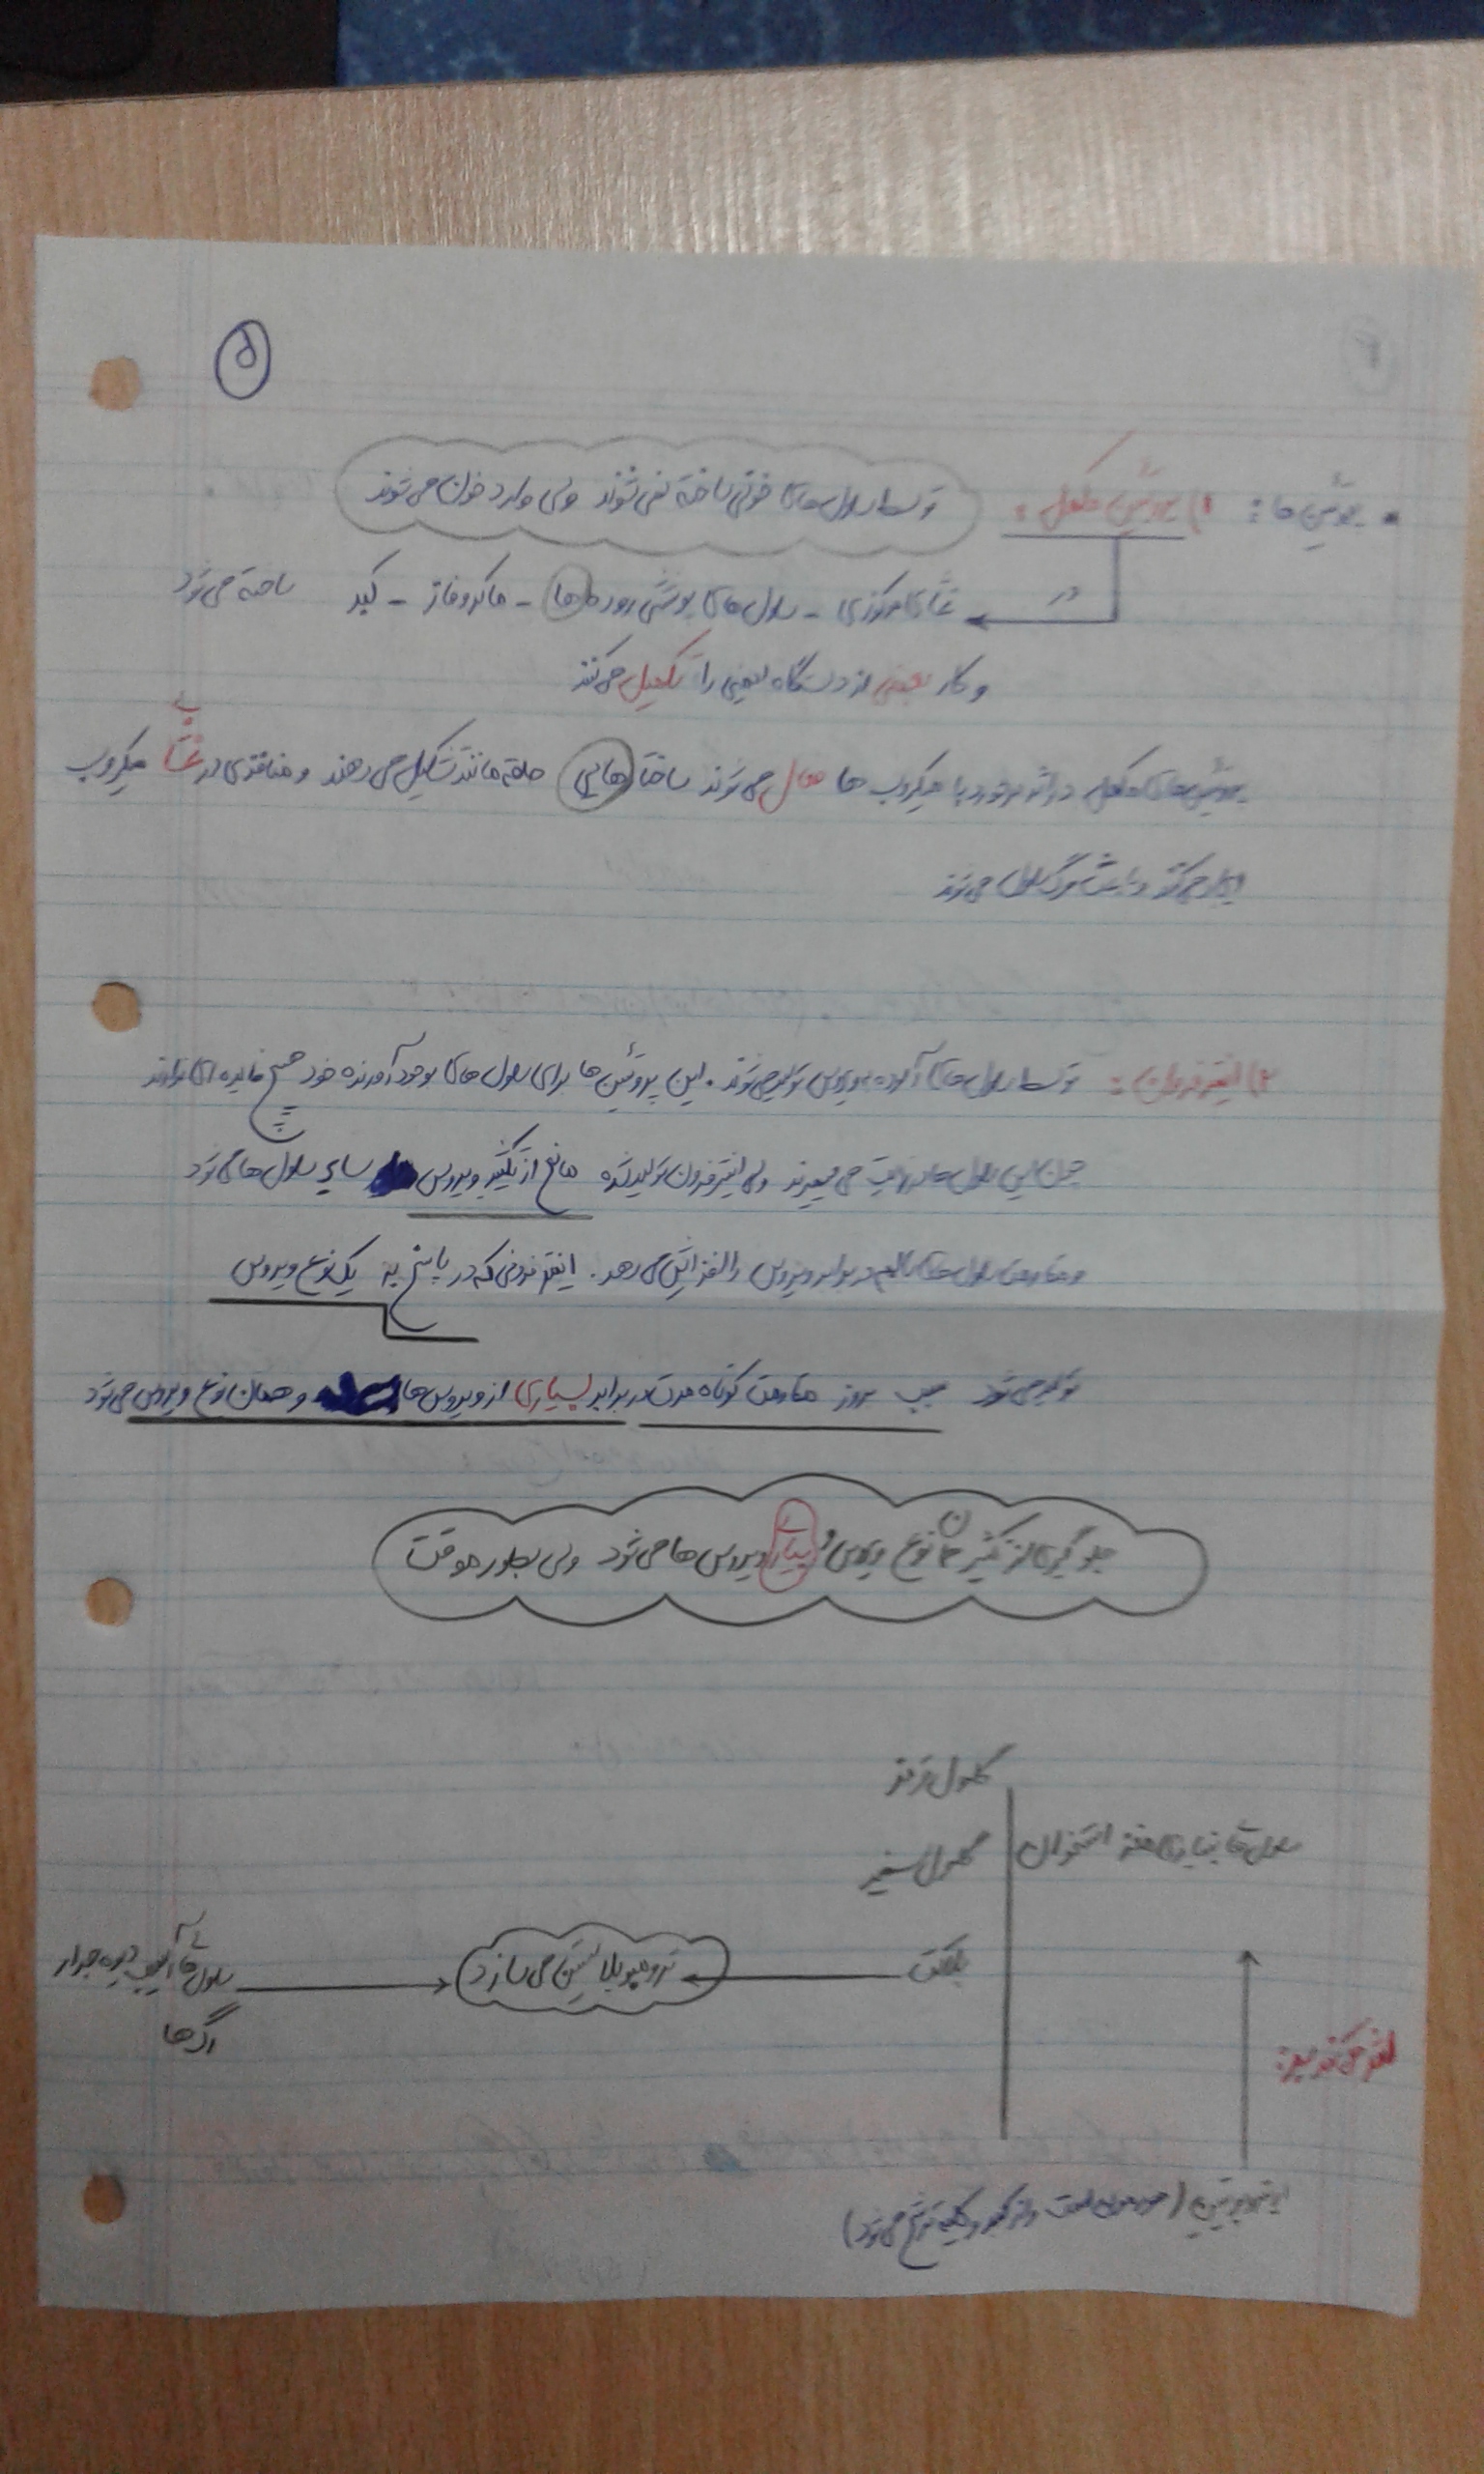 ۵
• پروتئین ها: ۱) پروتئین مکمل: توسط سلول های خونی ساخته نمی شوند ولی وارد خون می شوند
در سلول های پوششی روده ها - ماکروفاژ - کبد ساخته می شود
و کار بعضی از دستگاه ایمنی را تکمیل می کنند
پروتئین های مکمل در اثر برخورد با میکروب ها فعال می شوند ساختارهایی حلقه مانند تشکیل می دهند و منافذی در غشای میکروب
ایجاد می کنند و باعث مرگ سلول می شوند
۲) اینترفرون: توسط سلول های آلوده به ویروس تولید می شوند. این پروتئین ها برای سلول های بوجود آورنده خود هیچ فایده ای ندارند
چون این سلول ها در نهایت می میرند ولی اینترفرون تولید شده مانع از تکثیر ویروس سایر سلول ها می شود
و مقاومت سلول های سالم در برابر ویروس را افزایش می دهد. اینترفرونی که در پاسخ به یک نوع ویروس
تولید می شود سبب بروز مقاومت کوتاه مدت در برابر بسیاری از ویروس ها و همان نوع ویروس می شود
جلوگیری از تکثیر همان نوع ویروس و بسیاری ویروس ها می شود ولی بطور موقت
گلبول قرمز
سلول های بنیادی مغز استخوان گلبول سفید
سلول های آسیب دیده جدار ترومبوپلاستین می سازد پلاکت
رگ ها
اریتروپویتین (هورمون است و از کبد و کلیه ترشح می شود)